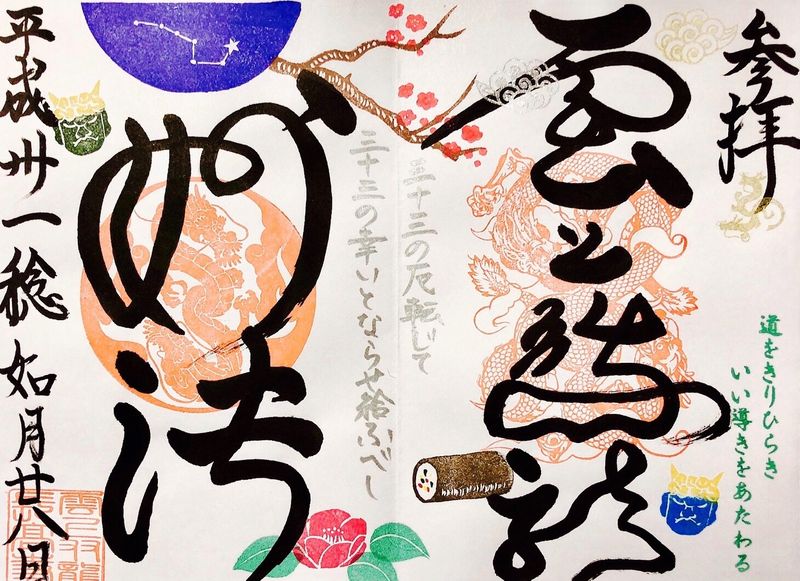 参拝
道をきりひらき
いい導きをあたわる
雲
龍
三十三の厄転じて
三十三の幸いとならせ給ふべし
妙法
平成卅一稔如月廿八日